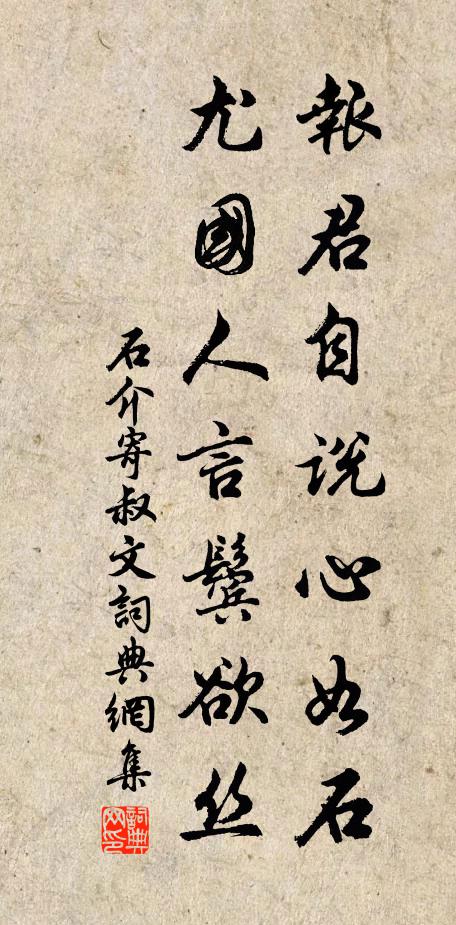 報君自說心如石
尤國人言鬢欲丝
石介寄叔文詞典網集
詞典
网印